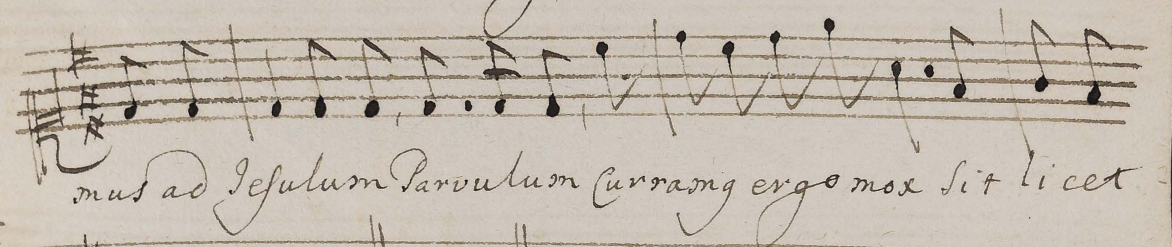 mus ad Jesulum Parvulum Curramg ergo mox sit licet